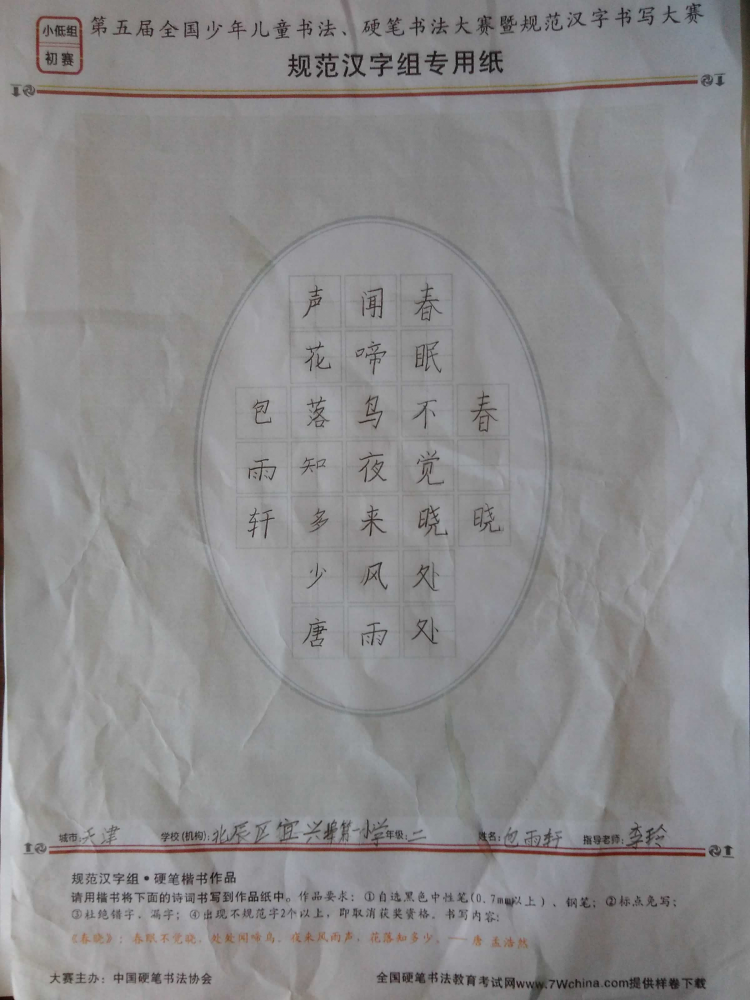 小低组
初赛
第五届全国少年儿童书法、硬笔书法大赛暨规范汉字书写大赛
规范汉字组专用纸
春晓
春眠不觉晓处处
闻啼鸟夜来风雨
声花落知多少唐
包雨轩
城市:天津 学校(机构):北辰区宜兴埠第一小学 年级:二 姓名:包雨轩 指导老师:李玲
规范汉字组•硬笔楷书作品
请用楷书将下面的诗词书写到作品纸中。作品要求:①自选黑色中性笔(0.7mm以上)、钢笔;②标点免写;
③杜绝错字、漏字;④出现不规范字2个以上,即取消获奖资格。书写内容:
《春晓》:春眠不觉晓,处处闻啼鸟。夜来风雨声,花落知多少。——唐 孟浩然
大赛主办:中国硬笔书法协会 全国硬笔书法教育考试网www.7Wchina.com提供样卷下载